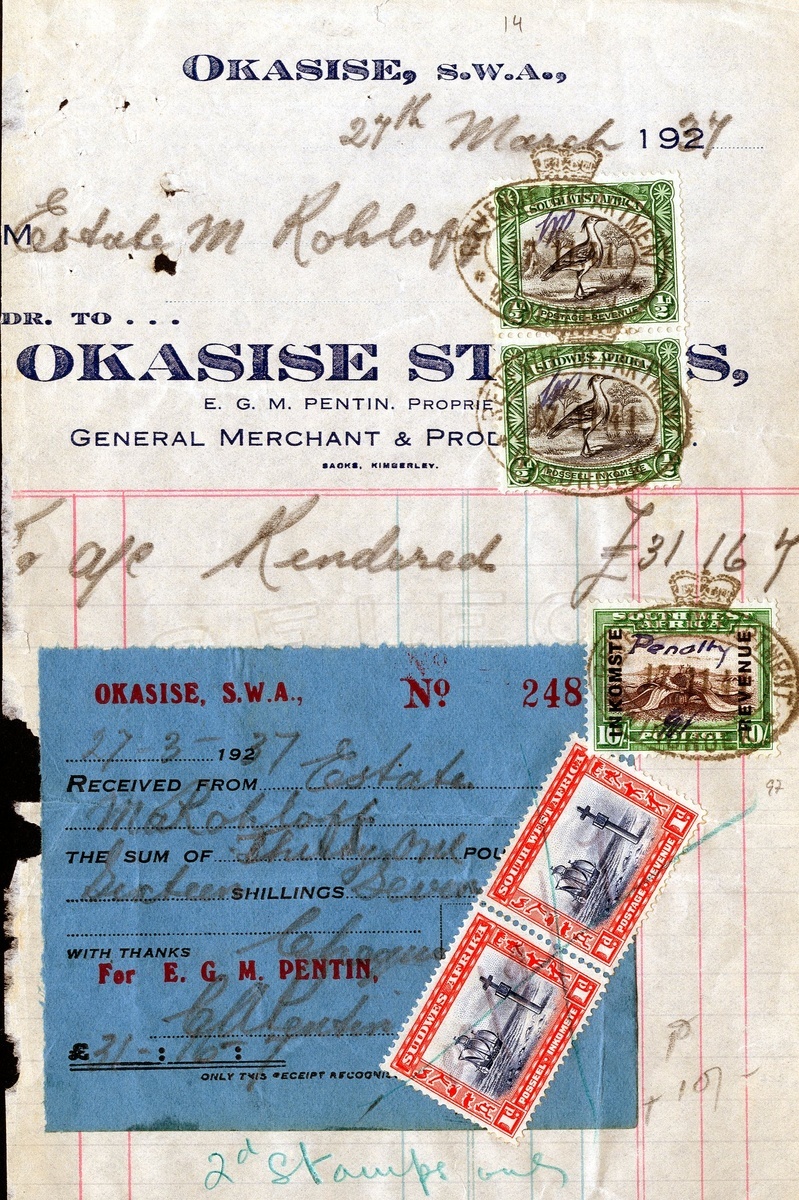 14
OKASISE, S.W.A.,
27th March 1937
M Estate M Rohloff
SOUTH WEST AFRICA
½D ½D
POSTAGE-REVENUE
DR. TO . . .
SUIDWES-AFRIKA
OKASISE ST S,
E. G. M. PENTIN. PROPRIE
GENERAL MERCHANT & PROD
SACKS, KIMBERLEY.
POSSEEL-INKOMSTE
a/c Rendered £31 16 7
SOUTH WEST AFRICA
INKOMSTE Penalty REVENUE
10/- POSTAGE 10/-
OKASISE, S.W.A., No 248
27-3-1937
RECEIVED FROM Estate
M Rohloff
THE SUM OF Thirty One POU
Sixteen SHILLINGS Seven
WITH THANKS Cheque
For E. G. M. PENTIN,
£ 31-:16-:7
ONLY THIS RECEIPT RECOGNI
SOUTH WEST AFRICA
1D. 1D.
POSTAGE-REVENUE
SUIDWES AFRIKA
1D. 1D.
POSSEEL-INKOMSTE
97
P
+ 10/-
2d Stamps only